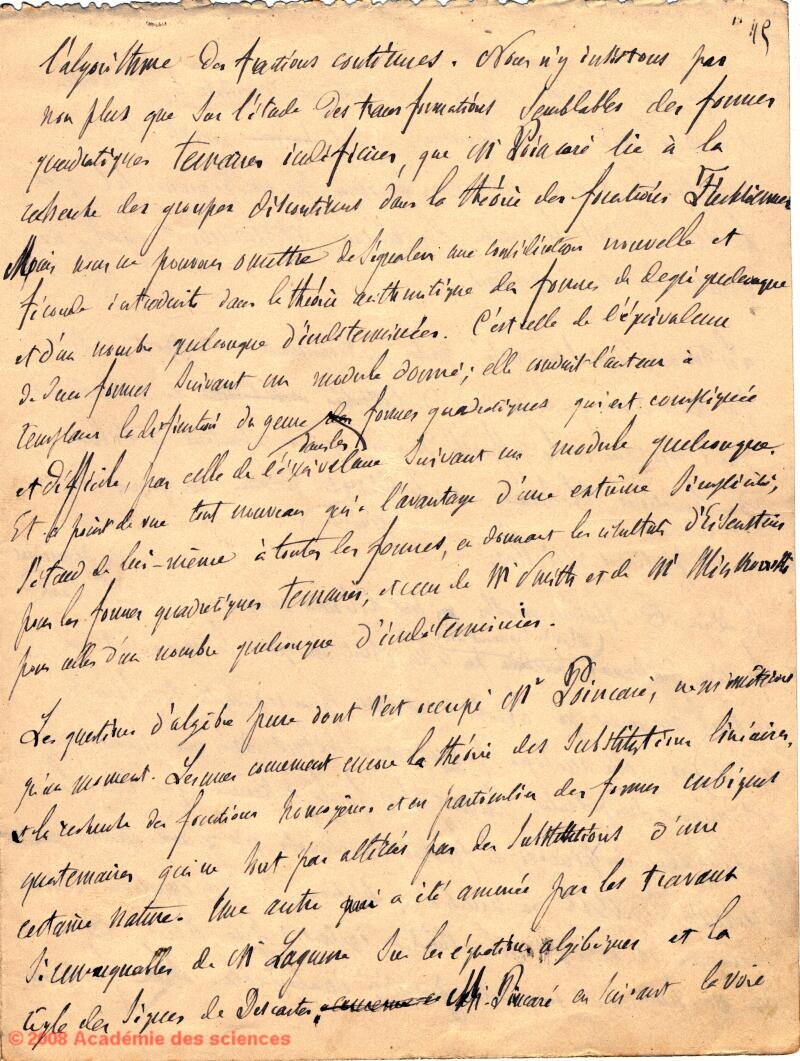 " 45
l'algorithme des fractions continues. Nous n'y insistons pas
non plus que sur l'étude des transformations semblables des formes
quadratiques ternaires indéfinies, que Mr Poincaré lie à la
recherche des groupes discontinus dans la théorie des fonctions Fuchsiennes
Mais nous ne pouvons omettre de signaler une considération nouvelle et
féconde introduite dans la théorie arithmétique des formes de degré quelconque
et d'un nombre quelconque d'indéterminées. C'est celle de l'équivalence
de deux formes suivant un module donné; elle conduit l'auteur à
remplacer la définition du genre des formes quadratiques qui est compliquée
dans les
et difficile, par celle de l'équivalence suivant un module quelconque.
Et ce point de vue tout nouveau qui a l'avantage d'une extrême simplicité,
s'étend de lui-même à toutes les formes, en donnant les résultats d'Eisenstein
pour les formes quadratiques ternaires, et ceux de Mr Smith et de Mr Minkowski
pour celles d'un nombre quelconque d'indéterminées.
Les questions d'algèbre pure dont s'est occupé Mr Poincaré, ne nous
qu'un moment. Les unes concernent encore la théorie des substitutions linéaires,
et la recherche des fonctions homogènes et en particulier des formes cubiques
quaternaires qui ne sont pas altérées par des substitutions d'une
certaine nature. Une autre a été amenée par les travaux
si remarquables de Mr Laguerre sur les équations algébriques et la
règle des signes de Descartes. Mr. Poincaré en suivant la voie
© 2008 Académie des sciences